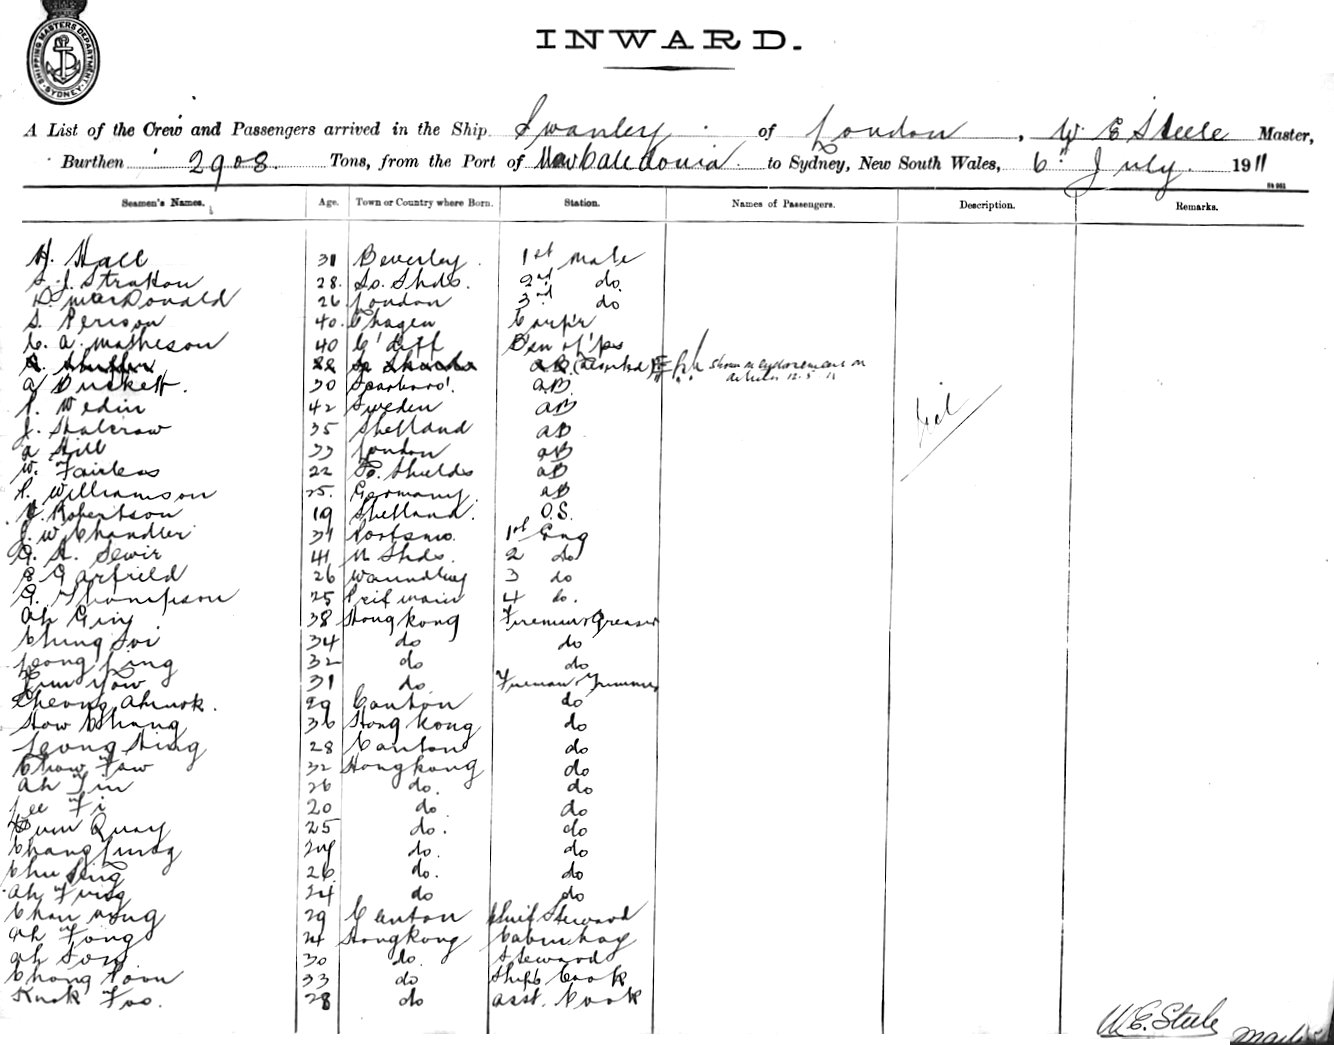 SHIPPING MASTERS DEPARTMENT SYDNEY
INWARD.
A List of the Crew and Passengers arrived in the Ship Swanley of London, W. E Steele Master,
Burthen 2908. Tons, from the Port of New Caledonia to Sydney, New South Wales, 6th July. 1911
Seamen's Names. Age. Town or Country where Born. Station. Names of Passengers. Description. Remarks.
H. Hall 31 Beverley. 1st Mate
S. J. Stratton 28. So. Shds. 2nd do
D. MacDonald 26 London 3rd do
S. Person 40. Carp'r
C. A. Matheson 40 C'diff B'sn
28 So Shields AB (Deserted) shown on endorsement on articles 12.5.11
A Duskett. 30 Scarboro'. AB.
Wedin 42 Sweden AB
J. Halcrow 35 Shetland AB
A Hill 33 London AB
W. Fairless 22 So. Shields AB
P. Williamson 25. Germany. AB
J. Robertson 19 Shetland. O.S.
J. W Chandler 37 Portsmo. 1st Eng
G. H. 41 N Shds. 2 do
E Garfield 26 3 do
G. Thompson 25 4 do.
Ah Ging 38 Hong Kong Fireman & Greaser
Ching Soi 34 do do
Leong Ping 32 do do
Yow 31 do Fireman & Trimmer
Cheong Ahmok. 29 Canton do
How Chang 36 Hong Kong do
Leong Hing 28 Canton do
Chow Faw 32 Hongkong do
Ah Tin 26 do. do
Lee Fi 20 do do
Quay 25 do. do
Chang 24 do. do
Chu Sing 26 do. do
Ah 24 do do
Chan Wong 29 Canton Chief Steward
Ah Fong 24 Hongkong Cabin boy
Ah Soy 30 do. Steward
Chong Poon 33 do Ship's Cook
Kwok Foo. 28 do asst. Cook
W. E. Steele Master